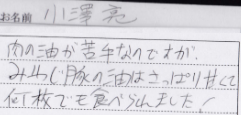 お名前 小澤 亮
肉の油が苦手なのですが、
みやじ豚の油はさっぱり甘くて
何枚でも食べられました!